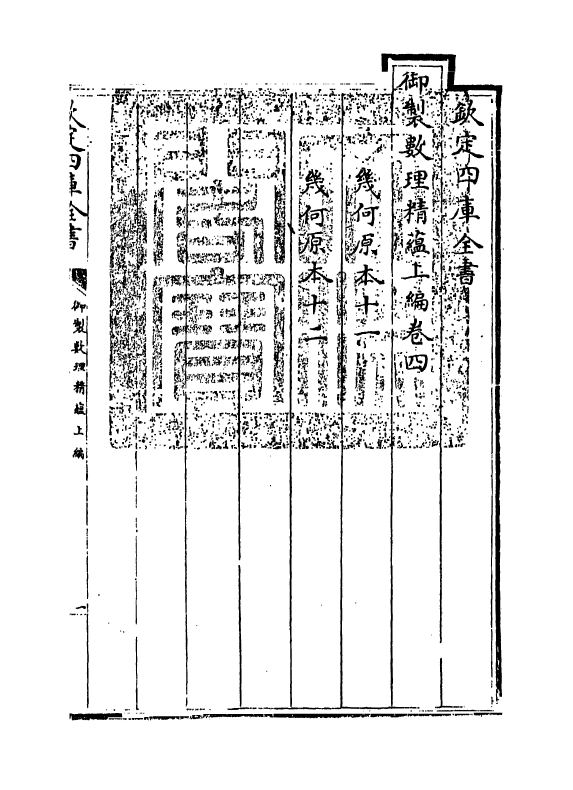 欽定四庫全書
御製數理精蘊上編卷四
幾何原本十一
幾何原本十二
欽定四庫全書
御製數理精蘊上編
一